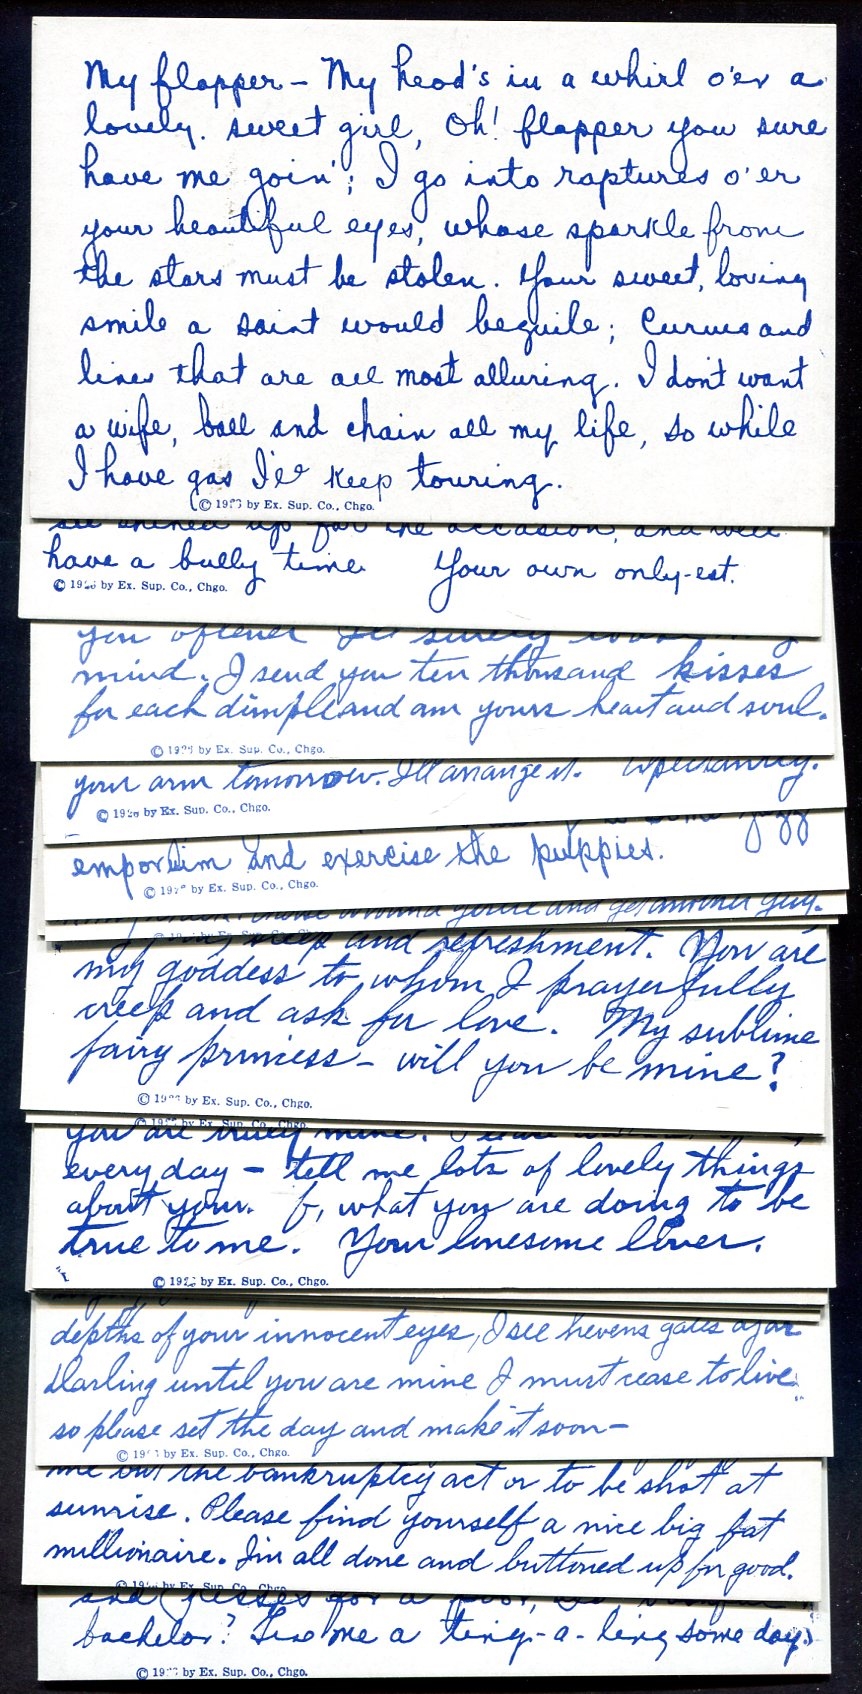 My flapper – My head's in a whirl o'er a
lovely. sweet girl, Oh! flapper you sure
have me goin'; I go into raptures o'er
your beautiful eyes, whose sparkle from
the stars must be stolen. Your sweet, loving
smile a saint would beguile; Curves and
lines that are all most alluring. I don't want
a wife, ball and chain all my life, so while
I have gas I'll keep touring.
© by Ex. Sup. Co., Chgo.
all shined up for the occasion, and we'll
have a bully time Your own only-est.
© by Ex. Sup. Co., Chgo.
you oftener I'll surely
mind. I send you ten thousand kisses
for each dimple and am yours heart and soul.
© by Ex. Sup. Co., Chgo.
your arm tomorrow. I'll arrange it. Expectantly.
© 1926 by Ex. Sup. Co., Chgo.
emporium and exercise the puppies.
© by Ex. Sup. Co., Chgo.
around you and get another guy.
sleep and refreshment. You are
my goddess to whom I prayerfully
creep and ask for love. My sublime
fairy princess – will you be mine?
© by Ex. Sup. Co., Chgo.
by Ex. Sup. Co., Chgo.
you are truly mine.
every day – tell me lots of lovely things
about your. f, what you are doing to be
true to me. Your lonesome lover.
© by Ex. Sup. Co., Chgo.
depths of your innocent eyes, I see hevens gates ajar
Darling until you are mine I must cease to live
so please set the day and make it soon –
© by Ex. Sup. Co., Chgo.
me but the bankruptcy act or to be shot at
sunrise. Please find yourself a nice big fat
millionaire. I'm all done and buttoned up for good.
© by Ex. Sup. Co., Chgo.
and kisses for a poor,
bachelor? Give me a ting-a-ling some day.
© by Ex. Sup. Co., Chgo.